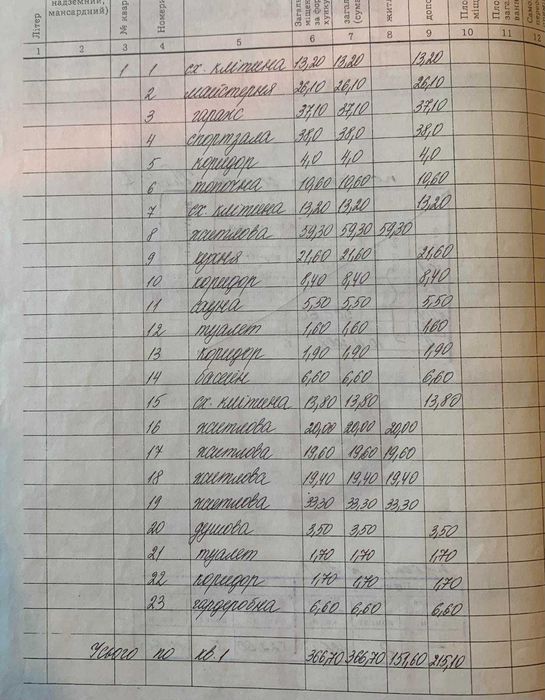 надземний, мансардний)
Літер
№ квар
Номери
Загаль
міщен
за фор
хунку
загал
(сума
жит
допо
Пло
міщ
Пло
загал
вано
Само
1 2 3 4 5 6 7 8 9 10 11 12
1 1 сх. клітина 13,20 13,20 13,20
2 майстерня 26,10 26,10 26,10
3 гараж 37,10 37,10 37,10
4 спортзала 38,0 38,0 38,0
5 коридор 4,0 4,0 4,0
6 топочна 10,60 10,60 10,60
7 сх. клітина 13,20 13,20 13,20
8 житлова 59,30 59,30 59,30
9 кухня 21,60 21,60 21,60
10 коридор 8,40 8,40 8,40
11 сауна 5,50 5,50 5,50
12 туалет 1,60 1,60 1,60
13 коридор 1,90 1,90 1,90
14 басейн 6,60 6,60 6,60
15 сх. клітина 13,80 13,80 13,80
16 житлова 20,00 20,00 20,00
17 житлова 19,60 19,60 19,60
18 житлова 19,40 19,40 19,40
19 житлова 33,30 33,30 33,30
20 душова 3,50 3,50 3,50
21 туалет 1,70 1,70 1,70
22 коридор 1,70 1,70 1,70
23 гардеробна 6,60 6,60 6,60
Усього по кв. 1 366,70 366,70 151,60 215,10